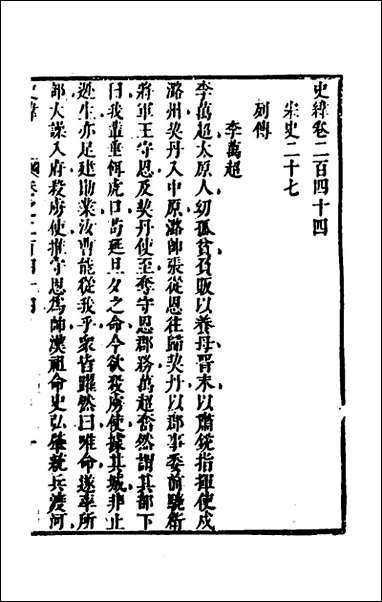 史緯卷二百四十四
宋史二十七
列傳
李萬超
李萬超太原人幼孤貧負販以養母晉末以肅銳指揮使戍
潞州契丹入中原潞帥張從恩往歸契丹以郡事委前驍衛
將軍王守恩及契丹使至奪守恩郡務萬超奮然謂其部下
曰我輩垂餌虎口苟延旦夕之命今欲殺虜使據其城非止
逃生亦足建勛業汝曹能從我乎眾皆躍然曰唯命遂率所
部大譟入府殺虜使推守恩為帥漢祖命史弘肇統兵渡河
史緯 卷之二百四十四 一